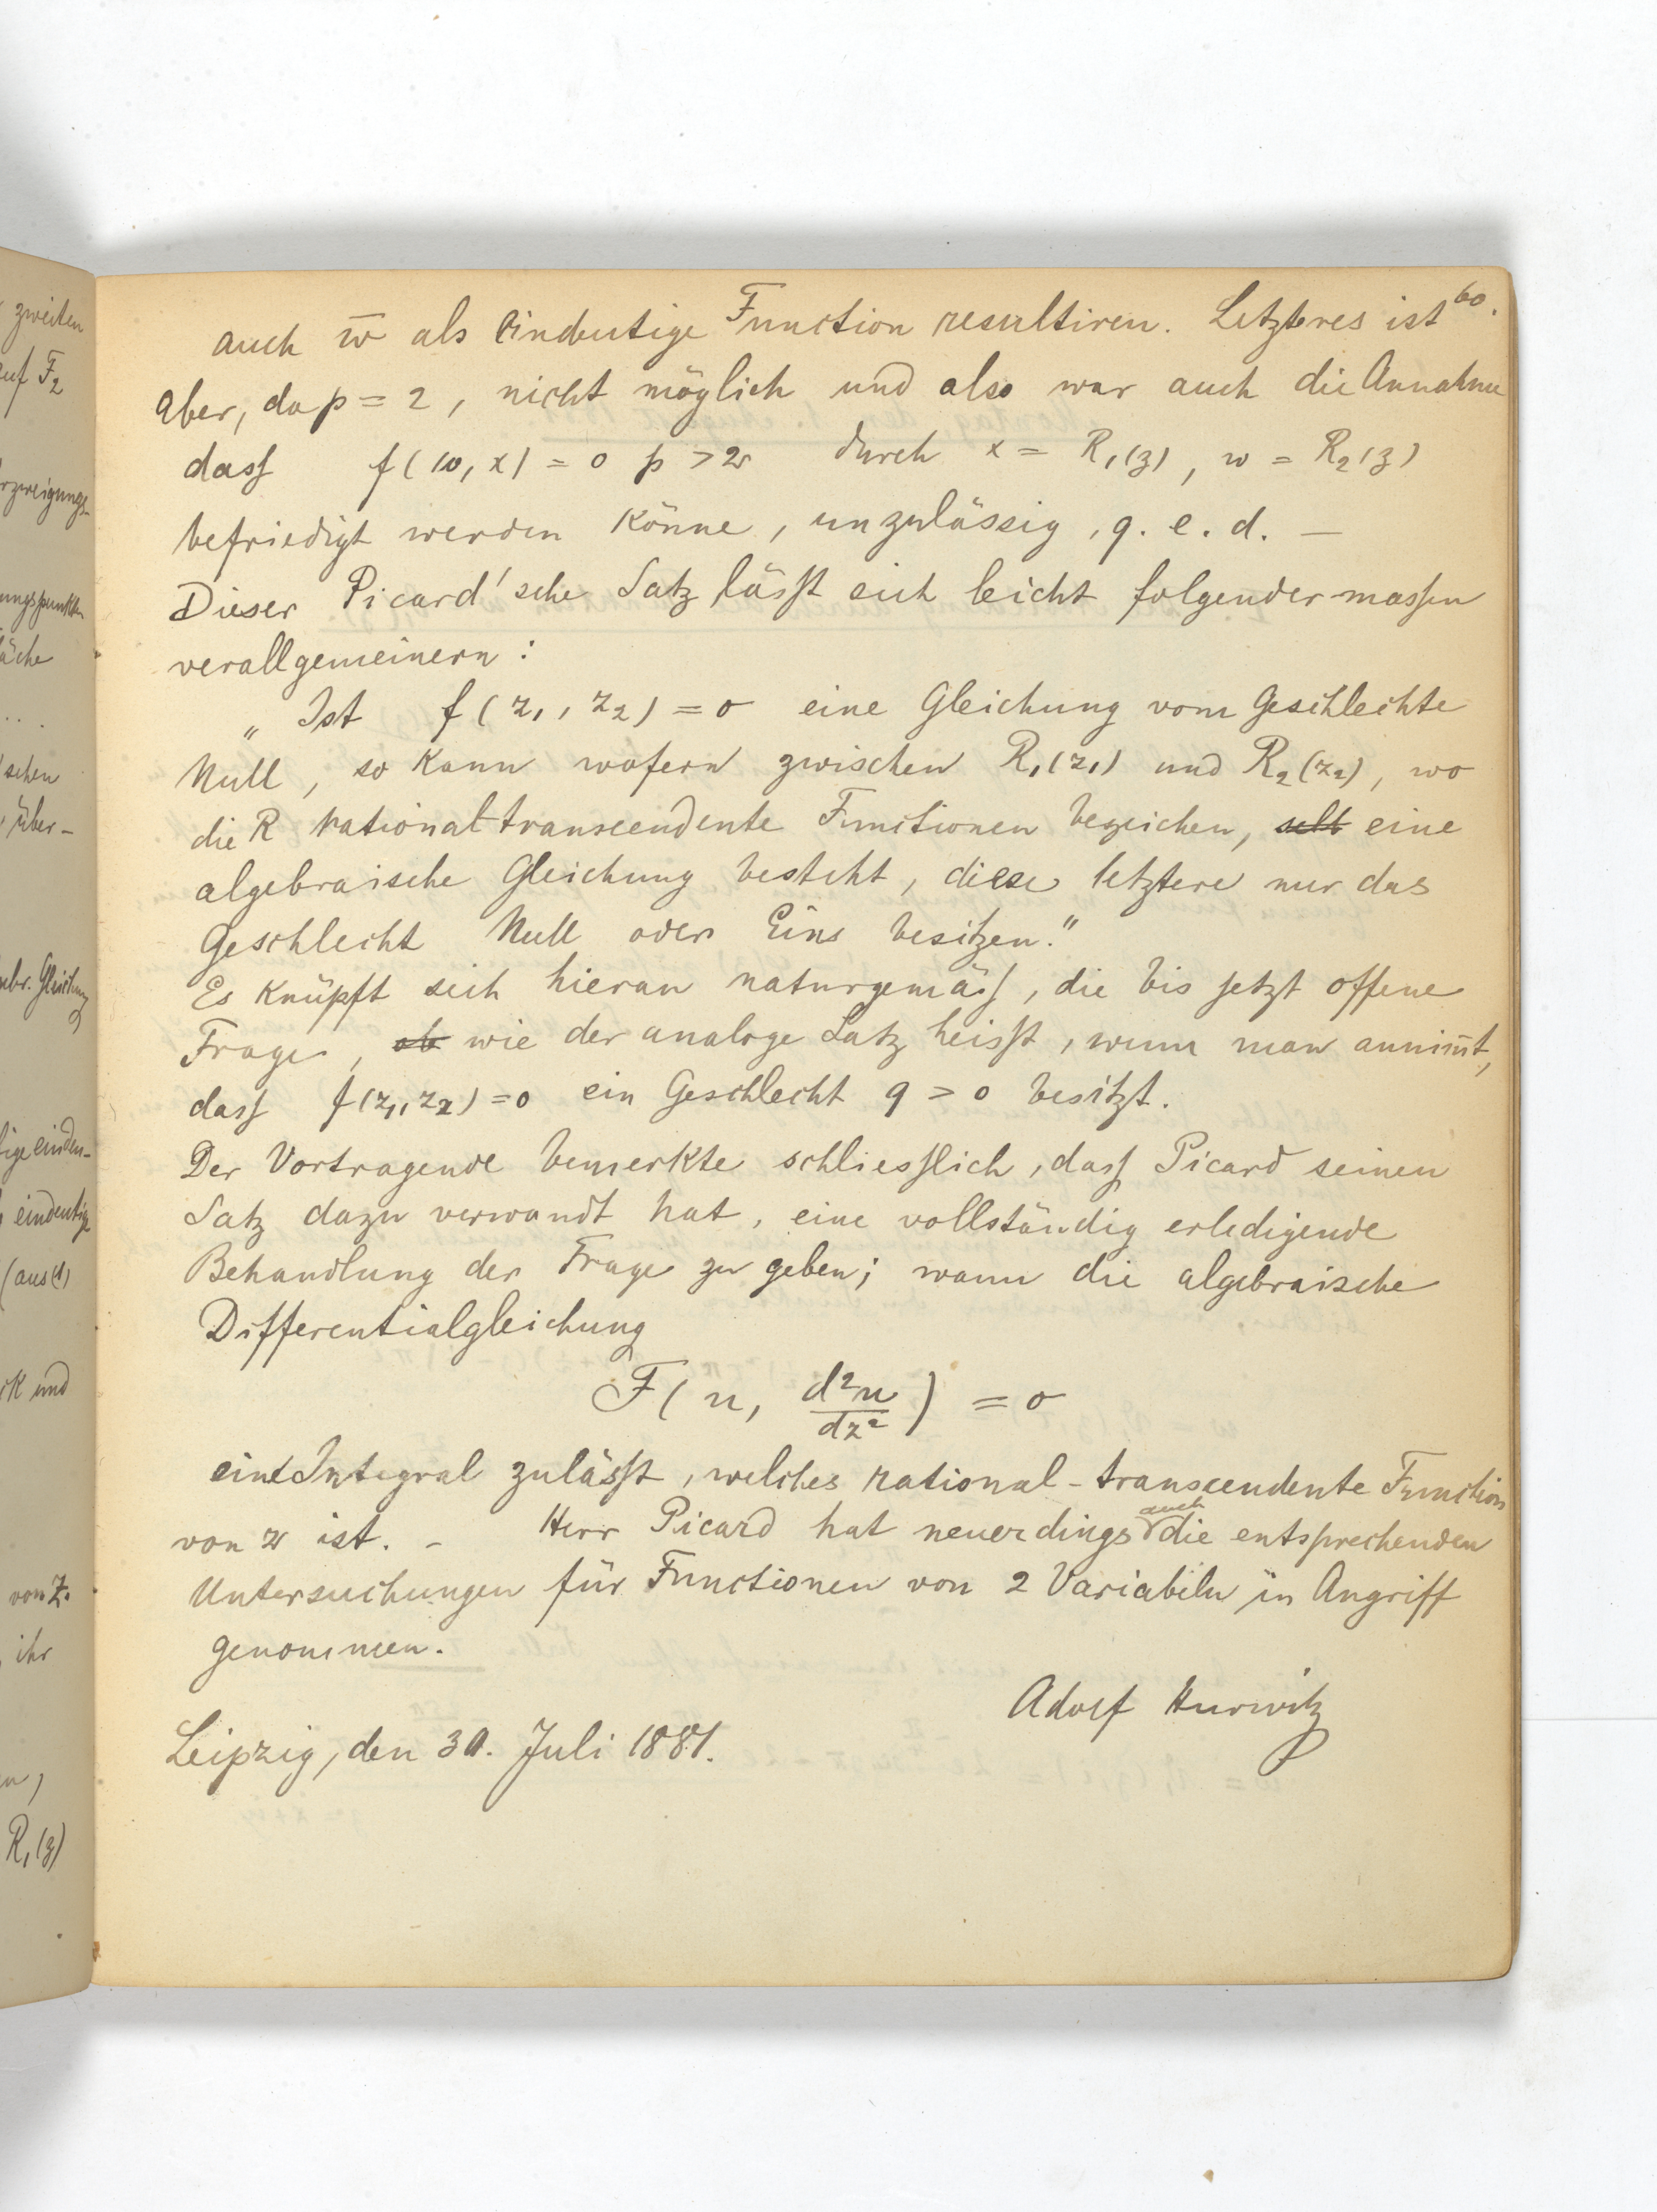 60.
auch w̅ als eindeutige Function resultiren. Letzteres ist
aber, da p = 2, nicht möglich und also war auch die Annahme
dass f(w, x) = 0 p > 2 durch x = R₁(z), w = R₂(z)
befriedigt werden könne, unzulässig, q. e. d. —
Dieser Picard'sche Satz lässt sich leicht folgender-massen
verallgemeinern:
„Ist f(z₁, z₂) = 0 eine Gleichung vom Geschlechte
Null, so kann wofern zwischen R₁(z₁) und R₂(z₂), wo
die R rational-transcendente Functionen bezeichen, eine
algebraische Gleichung besteht, diese letztere nur das
Geschlecht Null oder Eins besitzen."
Es knüpft sich hieran naturgemäss, die bis jetzt offene
Frage, ob wie der analoge Satz heisst, wenn man annim̅t,
dass f(z₁, z₂) = 0 ein Geschlecht q > 0 besitzt.
Der Vortragende bemerkte schliesslich, dass Picard seinen
Satz dazu verwandt hat, eine vollständig erledigende
Behandlung der Frage zu geben; wann die algebraische
Differentialgleichung
F(u, d²u/dz²) = 0
ein Integral zulässt, welches rational-transcendente Function
von z ist. – Herr Picard hat neuerdings auch die entsprechenden
Untersuchungen für Functionen von 2 Variabeln in Angriff
genommen.
Adolf Hurwitz
Leipzig, den 30. Juli 1881.
zweiten
auf F₂
ungspunkten
äche
schen
über-
Gleichung
eindeutige
und
von z.
ihr
R₁(z)